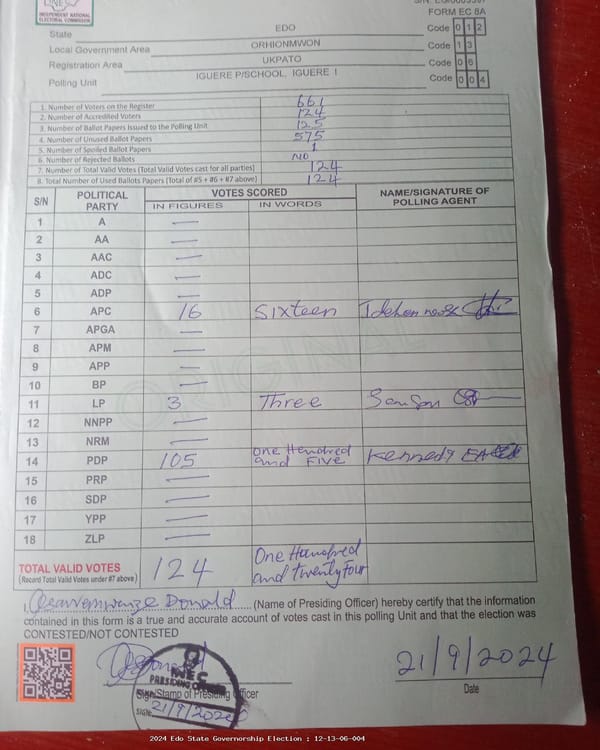 INEC
INDEPENDENT NATIONAL
ELECTORAL COMMISSION
FORM EC 8A
State EDO Code 0 1 2
Local Government Area ORHIONMWON Code 1 3
Registration Area UKPATO Code 0 6
Polling Unit IGUERE P/SCHOOL, IGUERE 1 Code 0 0 4
1. Number of Voters on the Register 661
2. Number of Accredited Voters 124
3. Number of Ballot Papers Issued to the Polling Unit
4. Number of Unused Ballot Papers 575
5. Number of Spoiled Ballot Papers 1
6. Number of Rejected Ballots NO
7. Number of Total Valid Votes (Total Valid Votes cast for all parties) 124
8. Total Number of Used Ballots Papers (Total of #5 + #6 + #7 above) 124
S/N POLITICAL PARTY VOTES SCORED NAME/SIGNATURE OF POLLING AGENT
IN FIGURES IN WORDS
1 A —
2 AA —
3 AAC —
4 ADC —
5 ADP —
6 APC 16 Sixteen Idehen
7 APGA —
8 APM —
9 APP —
10 BP —
11 LP 3 Three
12 NNPP —
13 NRM —
14 PDP 105 One Hondred and FIVE Kennedy
15 PRP —
16 SDP —
17 YPP —
18 ZLP —
TOTAL VALID VOTES 124 One Hondred
(Record Total Valid Votes under #7 above) and twenty Four
I, Donald (Name of Presiding Officer) hereby certify that the information
contained in this form is a true and accurate account of votes cast in this polling Unit and that the election was
CONTESTED/NOT CONTESTED
INEC
PRESIDING OFFICER
Sign/Stamp of Presiding Officer
SIGN:
21/9/2024
Date
2024 Edo State Governorship Election : 12-13-06-004